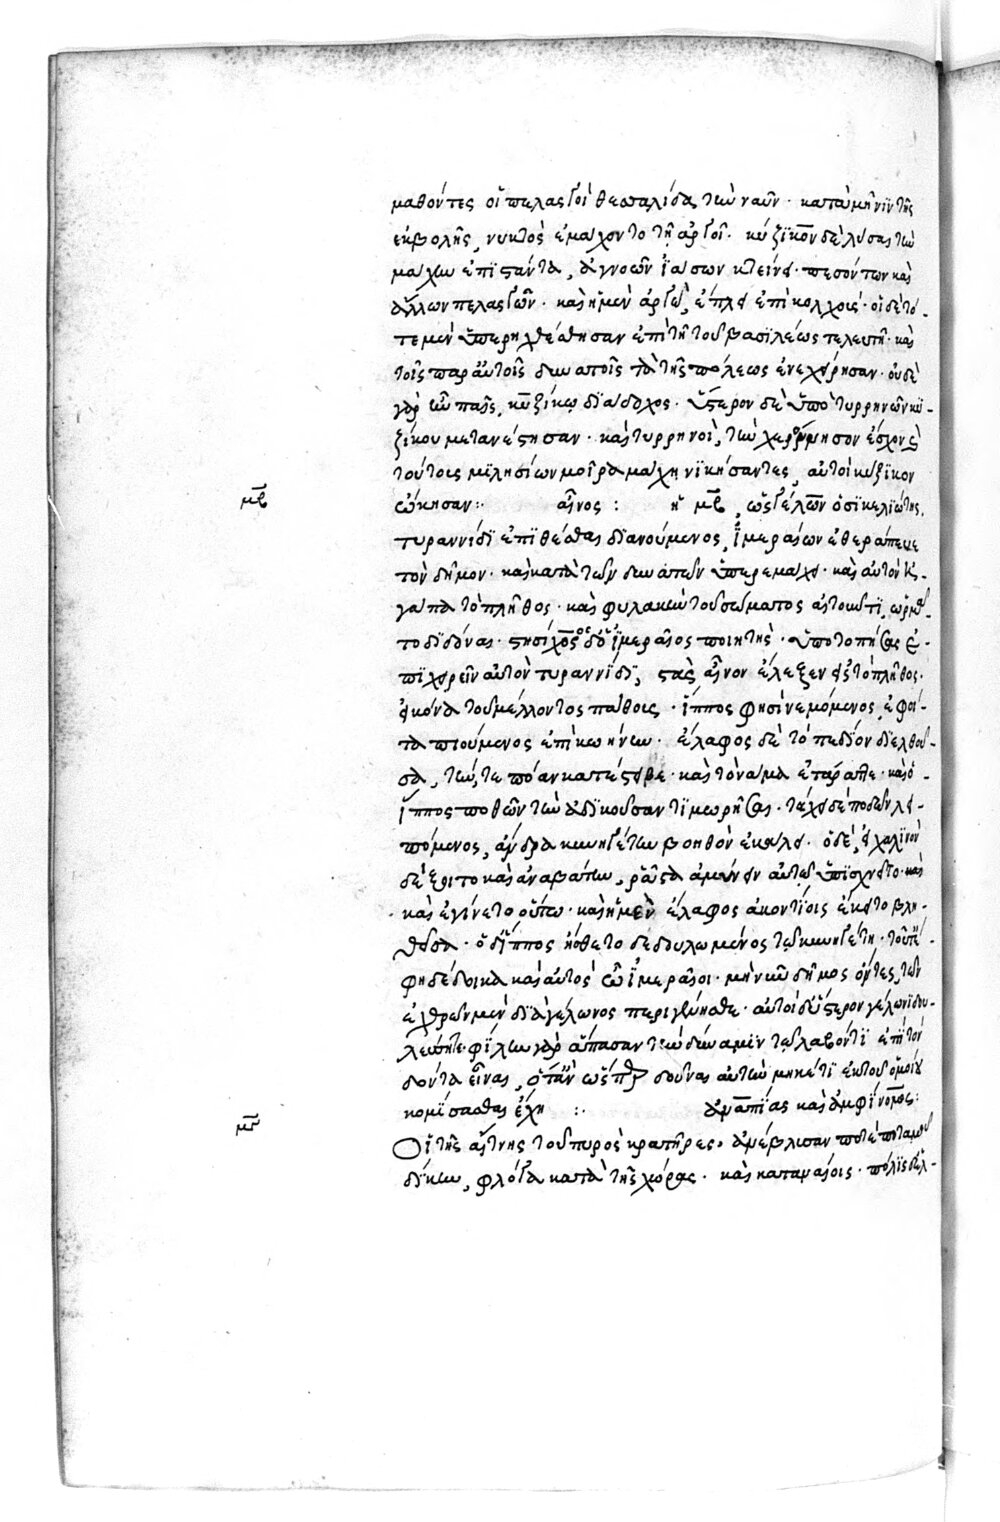 μαθόντες οἱ πελασγοὶ θεσσαλίδα τὴν ναῦν · κατὰ μῆνιν τῆς
ἐκβολῆς, νυκτὸς ἐμάχοντο τῇ ἀργοῖ · κύζικον δὲ λύσας τὴν
μάχην ἐπιστάντα, ἀγνοῶν ἰάσων κτείνει · πεσόντων καὶ
ἄλλων πελασγῶν · καὶ ἡ μὲν ἀργὼ, ἔπλει ἐπὶ κόλχοις · οἱ δὲ τό-
τε μὲν ὑπερηχθέσθησαν ἐπὶ τῇ τοῦ βασιλέως τελευτῇ · καὶ
τοῖς παρ' αὐτοῖς δυνατοῖς τὰ τῆς πόλεως ἐνεχείρησαν · οὐδὲ
γὰρ ὢν παῖς, κυζίκῳ διάδοχος · ὕστερον δὲ ὑπὸ τυρρηνῶν κυ-
ζίκου μετανέστησαν · καὶ τυρρηνοὶ, τὴν χερρόνησον ἔσχον
τούτους μιλησίων μοῖρα μάχῃ νικήσαντες, αὐτοὶ κύζικον
ᾤκησαν : αἶνος : ἡ μβ, ὡς γέλων ὁ σικελιώτης,
μβ
τυραννίδι ἐπιθέσθαι διανούμενος, ἱμεραίων ἐθεράπευε
τὸν δῆμον · καὶ κατὰ τῶν δυνατῶν ὑπερεμάχει · καὶ αὐτὸν ἠ-
γάπα τὸ πλῆθος · καὶ φυλακὴν τοῦ σώματος αἰτοῦντι, ὥρμη-
το διδόναι · στησίχορος δ' ὁ ἱμεραῖος ποιητὴς · ὑποτοπήσας ἐ-
πιχειρεῖν αὐτὸν τυραννίδι, στὰς αἶνον ἔλεξεν εἰς τὸ πλῆθος ·
εἰκόνα τοῦ μέλλοντος πάθους · ἵππος φησὶ νεμόμενος, ἐφοί-
τα πιούμενος ἐπὶ κρήνην · ἔλαφος δὲ τὸ πεδίον διελθοῦ-
σα, τήν τε πόαν κατέστειβε · καὶ τὸ νᾶμα ἐτάραττε · καὶ ὁ
ἵππος ποθῶν τὴν ἀδικοῦσαν τιμωρήσασθαι · τάχει δὲ ποδῶν λει-
πόμενος, ἄνδρα κυνηγέτην βοηθὸν ἐκάλει · ὁ δὲ, εἰ χαλινὸν
δέξαιτο καὶ ἀναβάτην, ῥᾷστα ἀμύνειν αὐτῷ ὑπισχνεῖτο · καὶ
καὶ ἐγίνετο οὕτω · καὶ ἡ μὲν ἔλαφος ἀκοντίοις ἔκειτο βλη-
θεῖσα · ὁ δ' ἵππος ᾔσθετο δεδουλωμένος τῷ κυνηγέτῃ · τοῦτ' ἔ-
φη δέδοικα καὶ αὐτὸς ὦ ἱμεραῖοι · μὴ νῦν δῆμος ὄντες, τῶν
ἐχθρῶν μὲν διὰ γέλωνος περιγένησθε · αὐτοὶ δ' ὕστερον γέλωνι δου-
λεύσητε · φίλην γὰρ ἅπασαν τὴν δύναμιν τῷ λαβόντι ἐπὶ τὸν
δόντα εἶναι, ὅταν ὥσπερ δοῦναι αὐτὴν μηκέτι ἐκ τοῦ ὁμοίου
κομίσασθαι ἔχῃ : ἀναπίας καὶ ἀμφίνομος :
μγ
Οἱ τῆς αἴτνης τοῦ πυρὸς κρατῆρες · ἀνέβλυσαν ποτὲ ποταμοῦ
δίκην, φλόγα κατὰ τῆς χώρας · καὶ καταναίοις · πόλις δ' ἐ-